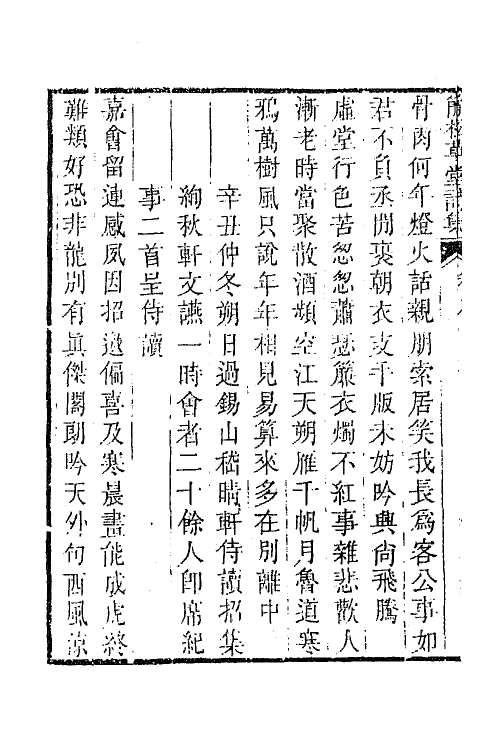 骨肉何年燈火話親朋索居笑我長爲客公事如
君不負丞閒裛朝衣支手版未妨吟興尙飛騰
虛堂行色苦怱怱蕭瑟簾衣燭不紅事雜悲歡人
漸老時當聚散酒頻空江天朔雁千帆月魯道寒
鴉萬樹風只說年年相見易算來多在別離中
辛丑仲冬朔日過錫山嵇晴軒侍讀招集
絢秋軒文讌一時會者二十餘人卽席紀
事二首呈侍讀
嘉會留連感夙因招邀偏喜及寒晨畫能成虎終
難類好恐非龍別有眞傑閣朗吟天外句西風涼
草堂詩集